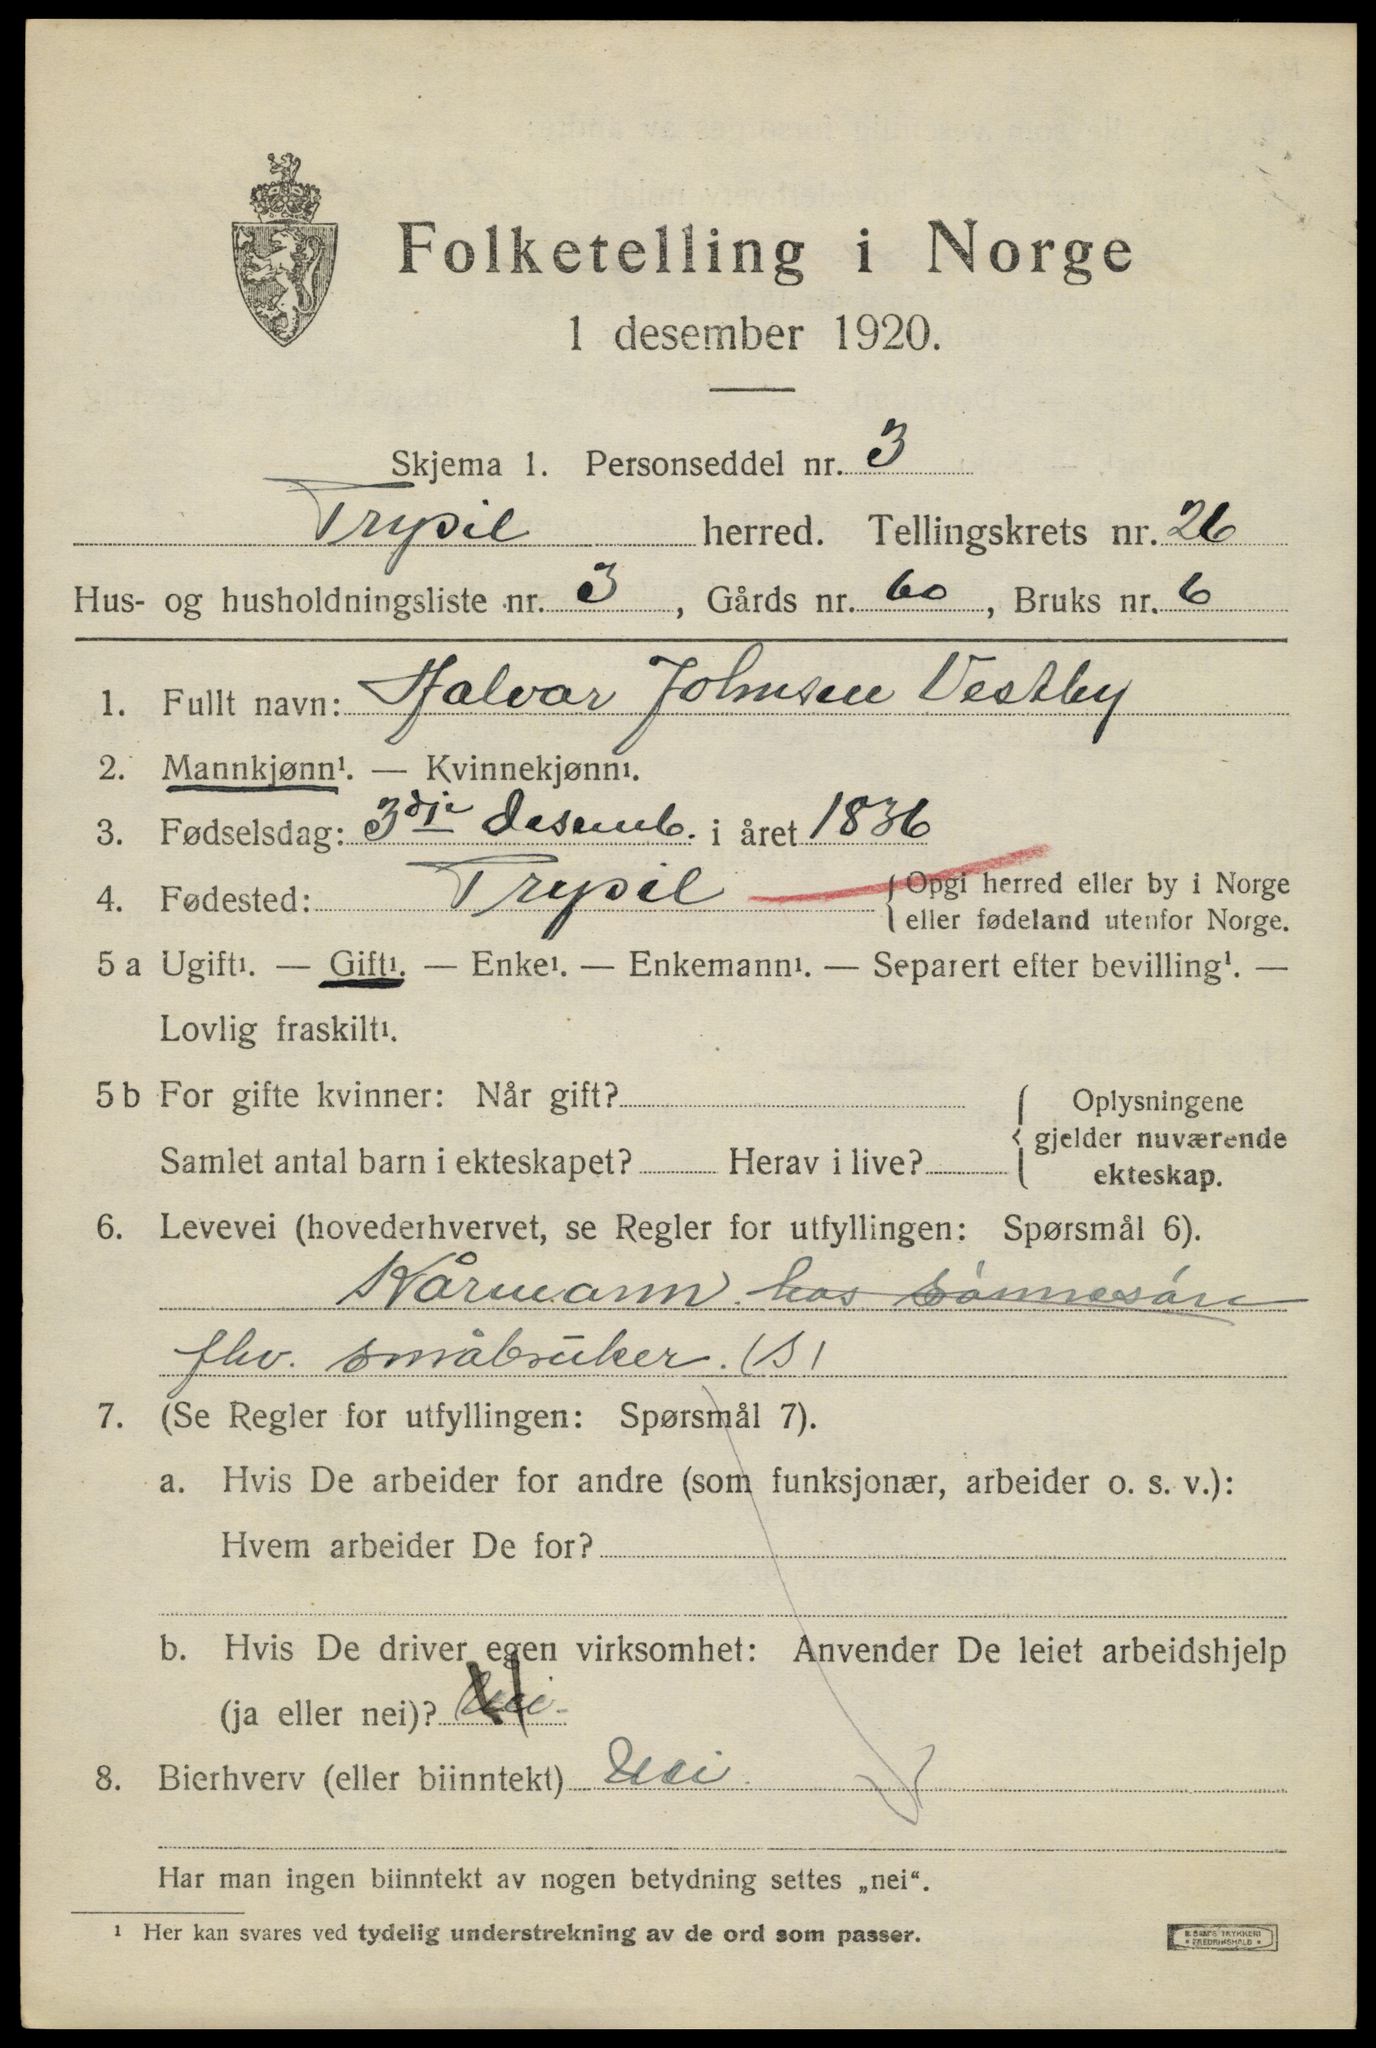 Folketelling i Norge
1 desember 1920.
Skjema 1. Personseddel nr. 3
Trysil herred. Tellingskrets nr. 26
Hus- og husholdningsliste nr. 3, Gårds nr. 60, Bruks nr. 6
1. Fullt navn: Halvar Johnsen Vestby
2. Mannkjønn¹. — Kvinnekjønn¹.
3. Fødselsdag: 3die desemb. i året 1836
4. Fødested: Trysil {Opgi herred eller by i Norge
eller fødeland utenfor Norge.
5 a Ugift¹. — Gift¹. — Enke¹. — Enkemann¹. — Separert efter bevilling¹. —
Lovlig fraskilt¹.
5 b For gifte kvinner: Når gift?
Samlet antal barn i ekteskapet? Herav i live?
{Oplysningene
gjelder nuværende
ekteskap.
6. Levevei (hovederhvervet, se Regler for utfyllingen: Spørsmål 6).
Kårmann hos sønnesøn
fhv. småbruker. (S)
7. (Se Regler for utfyllingen: Spørsmål 7).
a. Hvis De arbeider for andre (som funksjonær, arbeider o. s. v.):
Hvem arbeider De for?
b. Hvis De driver egen virksomhet: Anvender De leiet arbeidshjelp
(ja eller nei)? Nei
8. Bierhverv (eller biinntekt) Nei
Har man ingen biinntekt av nogen betydning settes „nei“.
¹ Her kan svares ved tydelig understrekning av de ord som passer.
TRYKKERI
FREDRIKSHALD